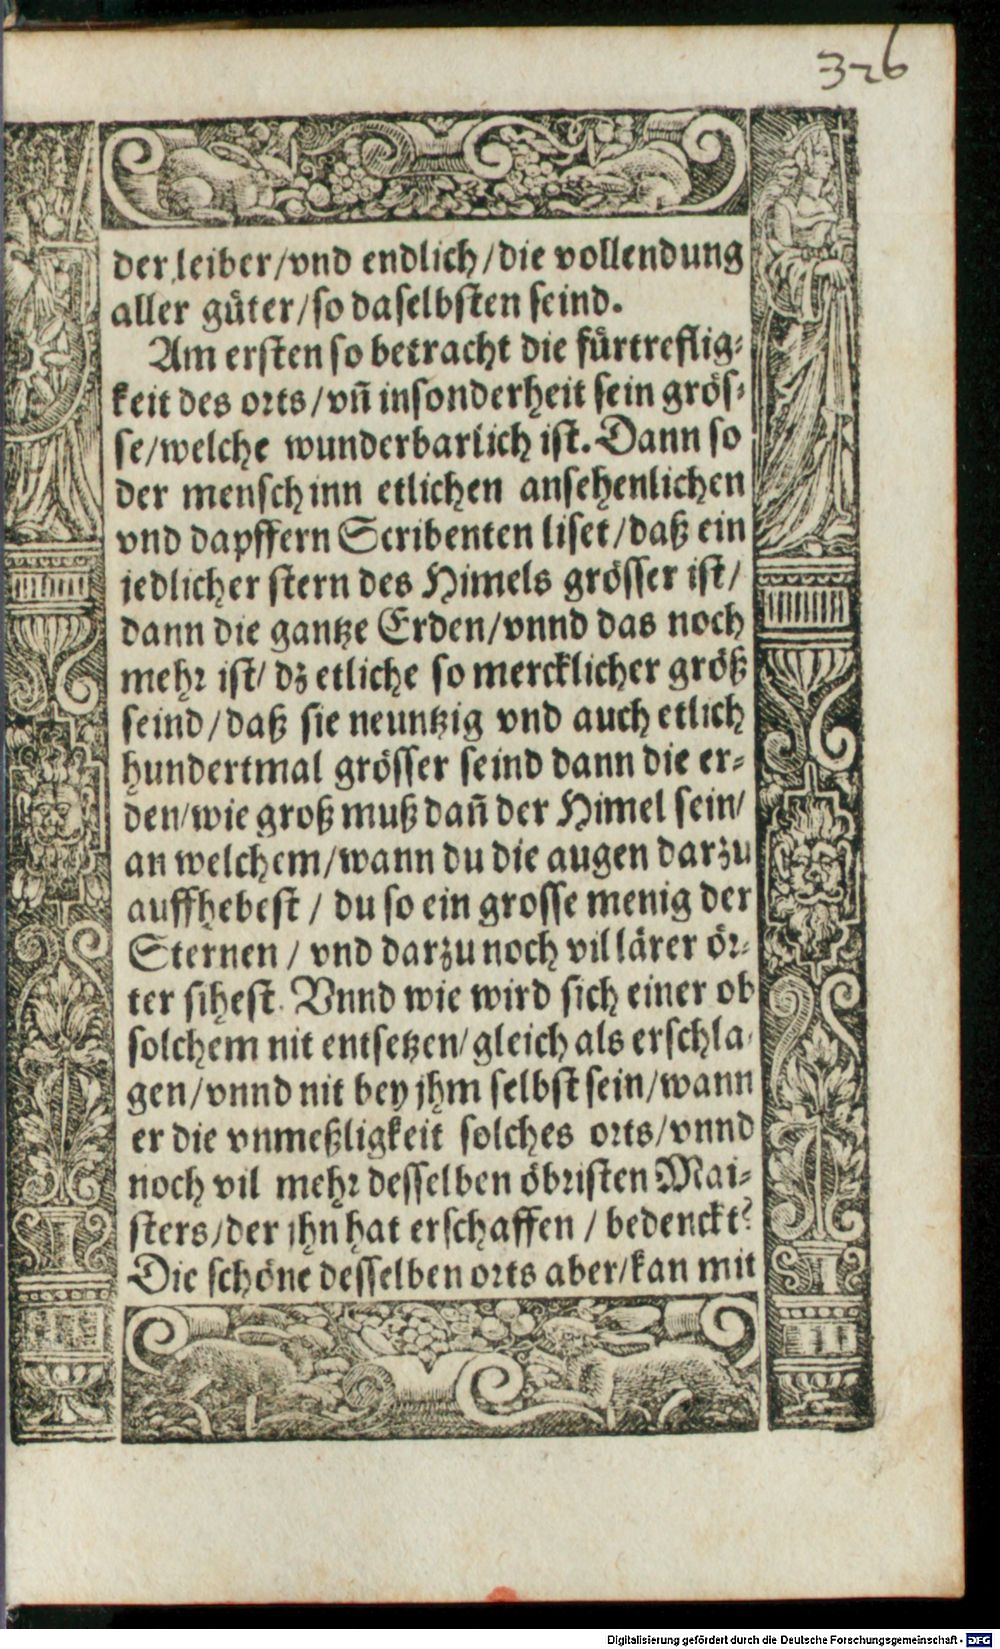 326
der leiber/vnd endlich/die vollendung
aller güter/so daselbsten seind.
Am ersten so betracht die fürtreflig⸗
keit des orts/vñ insonderheit sein grös⸗
se/welche wunderbarlich ist. Dann so
der mensch inn etlichen ansehenlichen
vnd dapffern Scribenten liset/daß ein
jedlicher stern des Himels grösser ist/
dann die gantze Erden/vnnd das noch
mehr ist/ dz etliche so mercklicher größ
seind/daß sie neuntzig vnd auch etlich
hundertmal grösser seind dann die er⸗
den/wie groß muß dañ der Himel sein/
an welchem/wann du die augen darzu
auffhebest / du so ein grosse menig der
Sternen / vnd darzu noch vil lärer ör⸗
ter sihest. Vnnd wie wird sich einer ob
solchem nit entsetzen/gleich als erschla⸗
gen/vnnd nit bey jhm selbst sein/wann
er die vnmeßligkeit solches orts/vnnd
noch vil mehr desselben öbristen Mai⸗
sters/der jhn hat erschaffen / bedenckt?
Die schöne desselben orts aber/kan mit
Digitalisierung gefördert durch die Deutsche Forschungsgemeinschaft - DFG